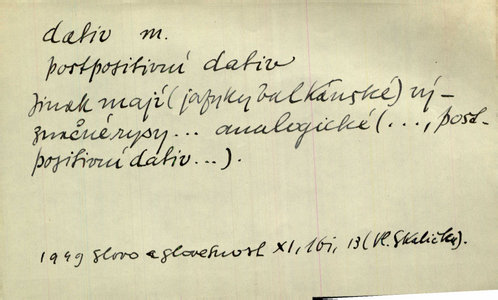 dativ m.
postpositivní dativ
Jinak mají (jazyky balkánské) vý-
značné rysy... analogické (..., post-
positivní dativ...).
1949 Slovo a slovesnost XI, 16i, 13 (Vl. Skalička).